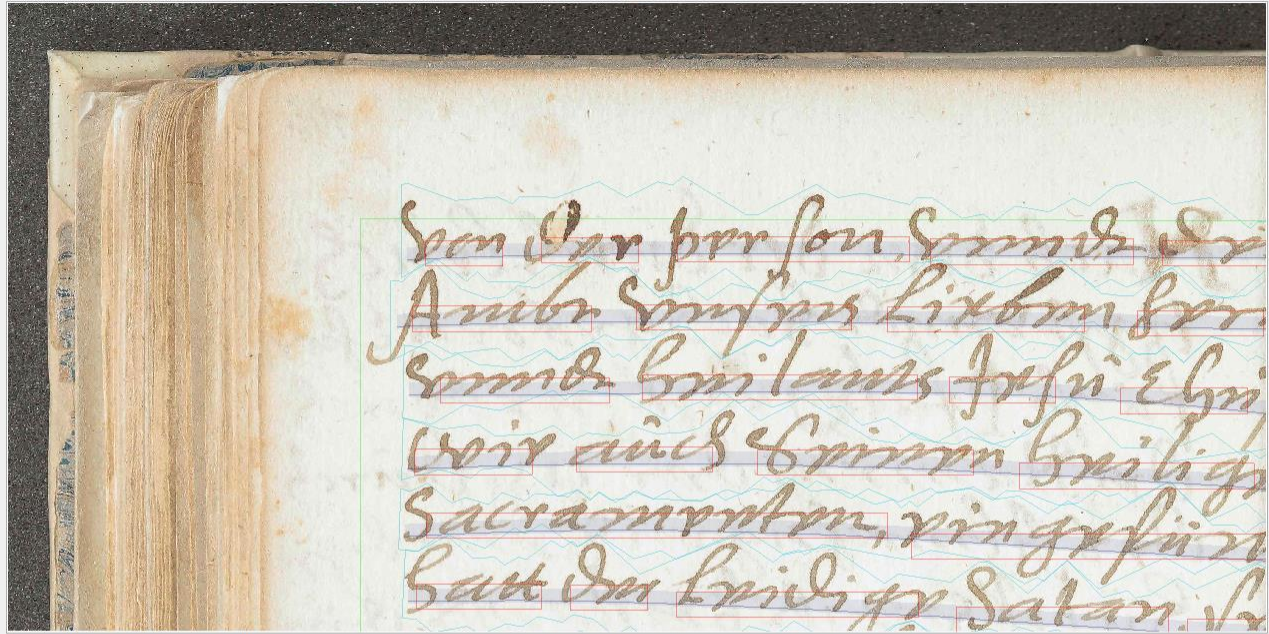 von der person, vnnd di
Ambt vnsers Lieben Her
vnnd heilants Jesu Chri
wir auch Seinen heilig
Sacramenten, ein gefür
hatt der leidige Satan,